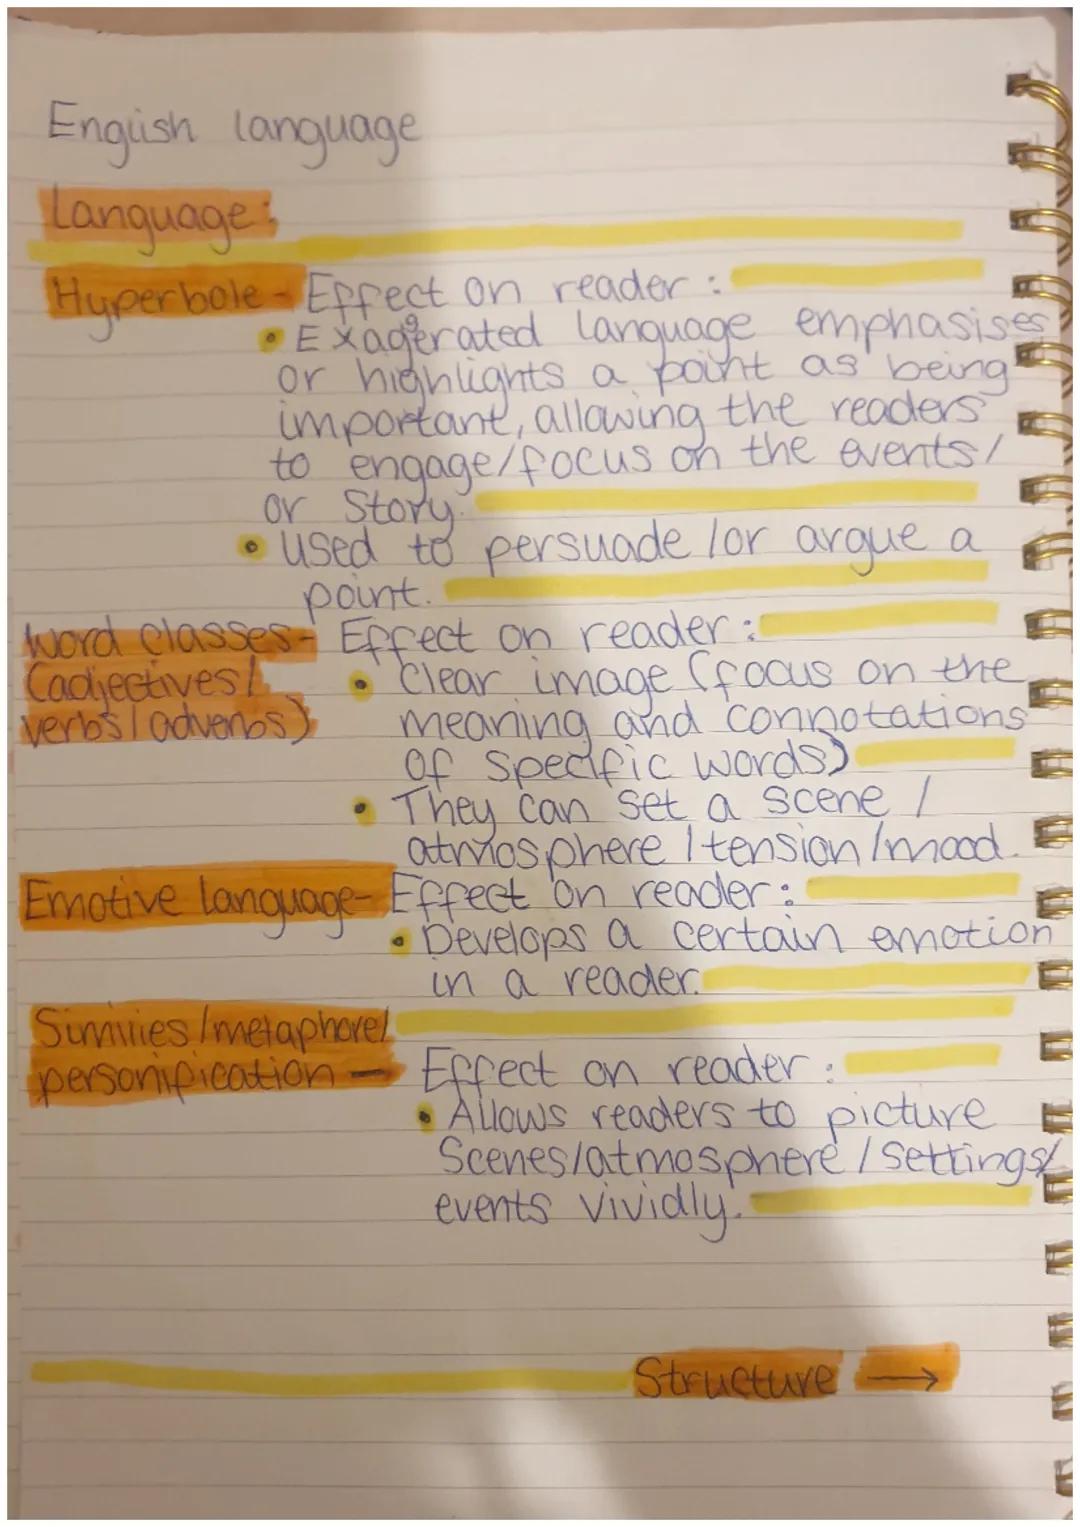 English language
Language:
Hyperbole - Effect on reader:
• Exaggerated language emphasises
or highlights a point as being
important, allowing the readers
to engage/focus on the events/
or story.
• used to persuade /or argue a
point.
Word classes - Effect on reader:
(adjectives/ • Clear image (focus on the
verbs/adverbs) meaning and connotations
of specific words)
• They can set a scene /
atmosphere /tension/mood.
Emotive language- Effect on reader:
• Develops a certain emotion
in a reader.
Similies/metaphore/
personification - Effect on reader:
• Allows readers to picture
scenes/atmosphere/settings/
events vividly.
Structure →